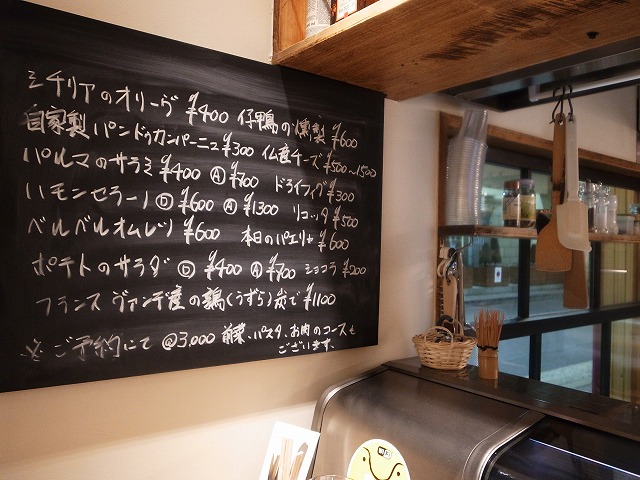 シチリアのオリーヴ ¥400 仔鴨の燻製 ¥600
自家製パンドゥカンパーニュ ¥300 仏産チーズ ¥500~1500
パルマのサラミ ¥400 Ⓐ ¥700 ドライフィグ ¥300
ハモンセラーノ Ⓓ ¥600 Ⓐ ¥1300 リコッタ ¥500
ベルベルオムレツ ¥600 本日のパエリヤ ¥600
ポテトのサラダ Ⓓ ¥400 Ⓐ ¥700 ショコラ ¥200
フランス ヴァンデ産の鶉(うずら)炭で ¥1100
※ご予約にて @3,000 前菜、パスタ、お肉のコースも
ございます.